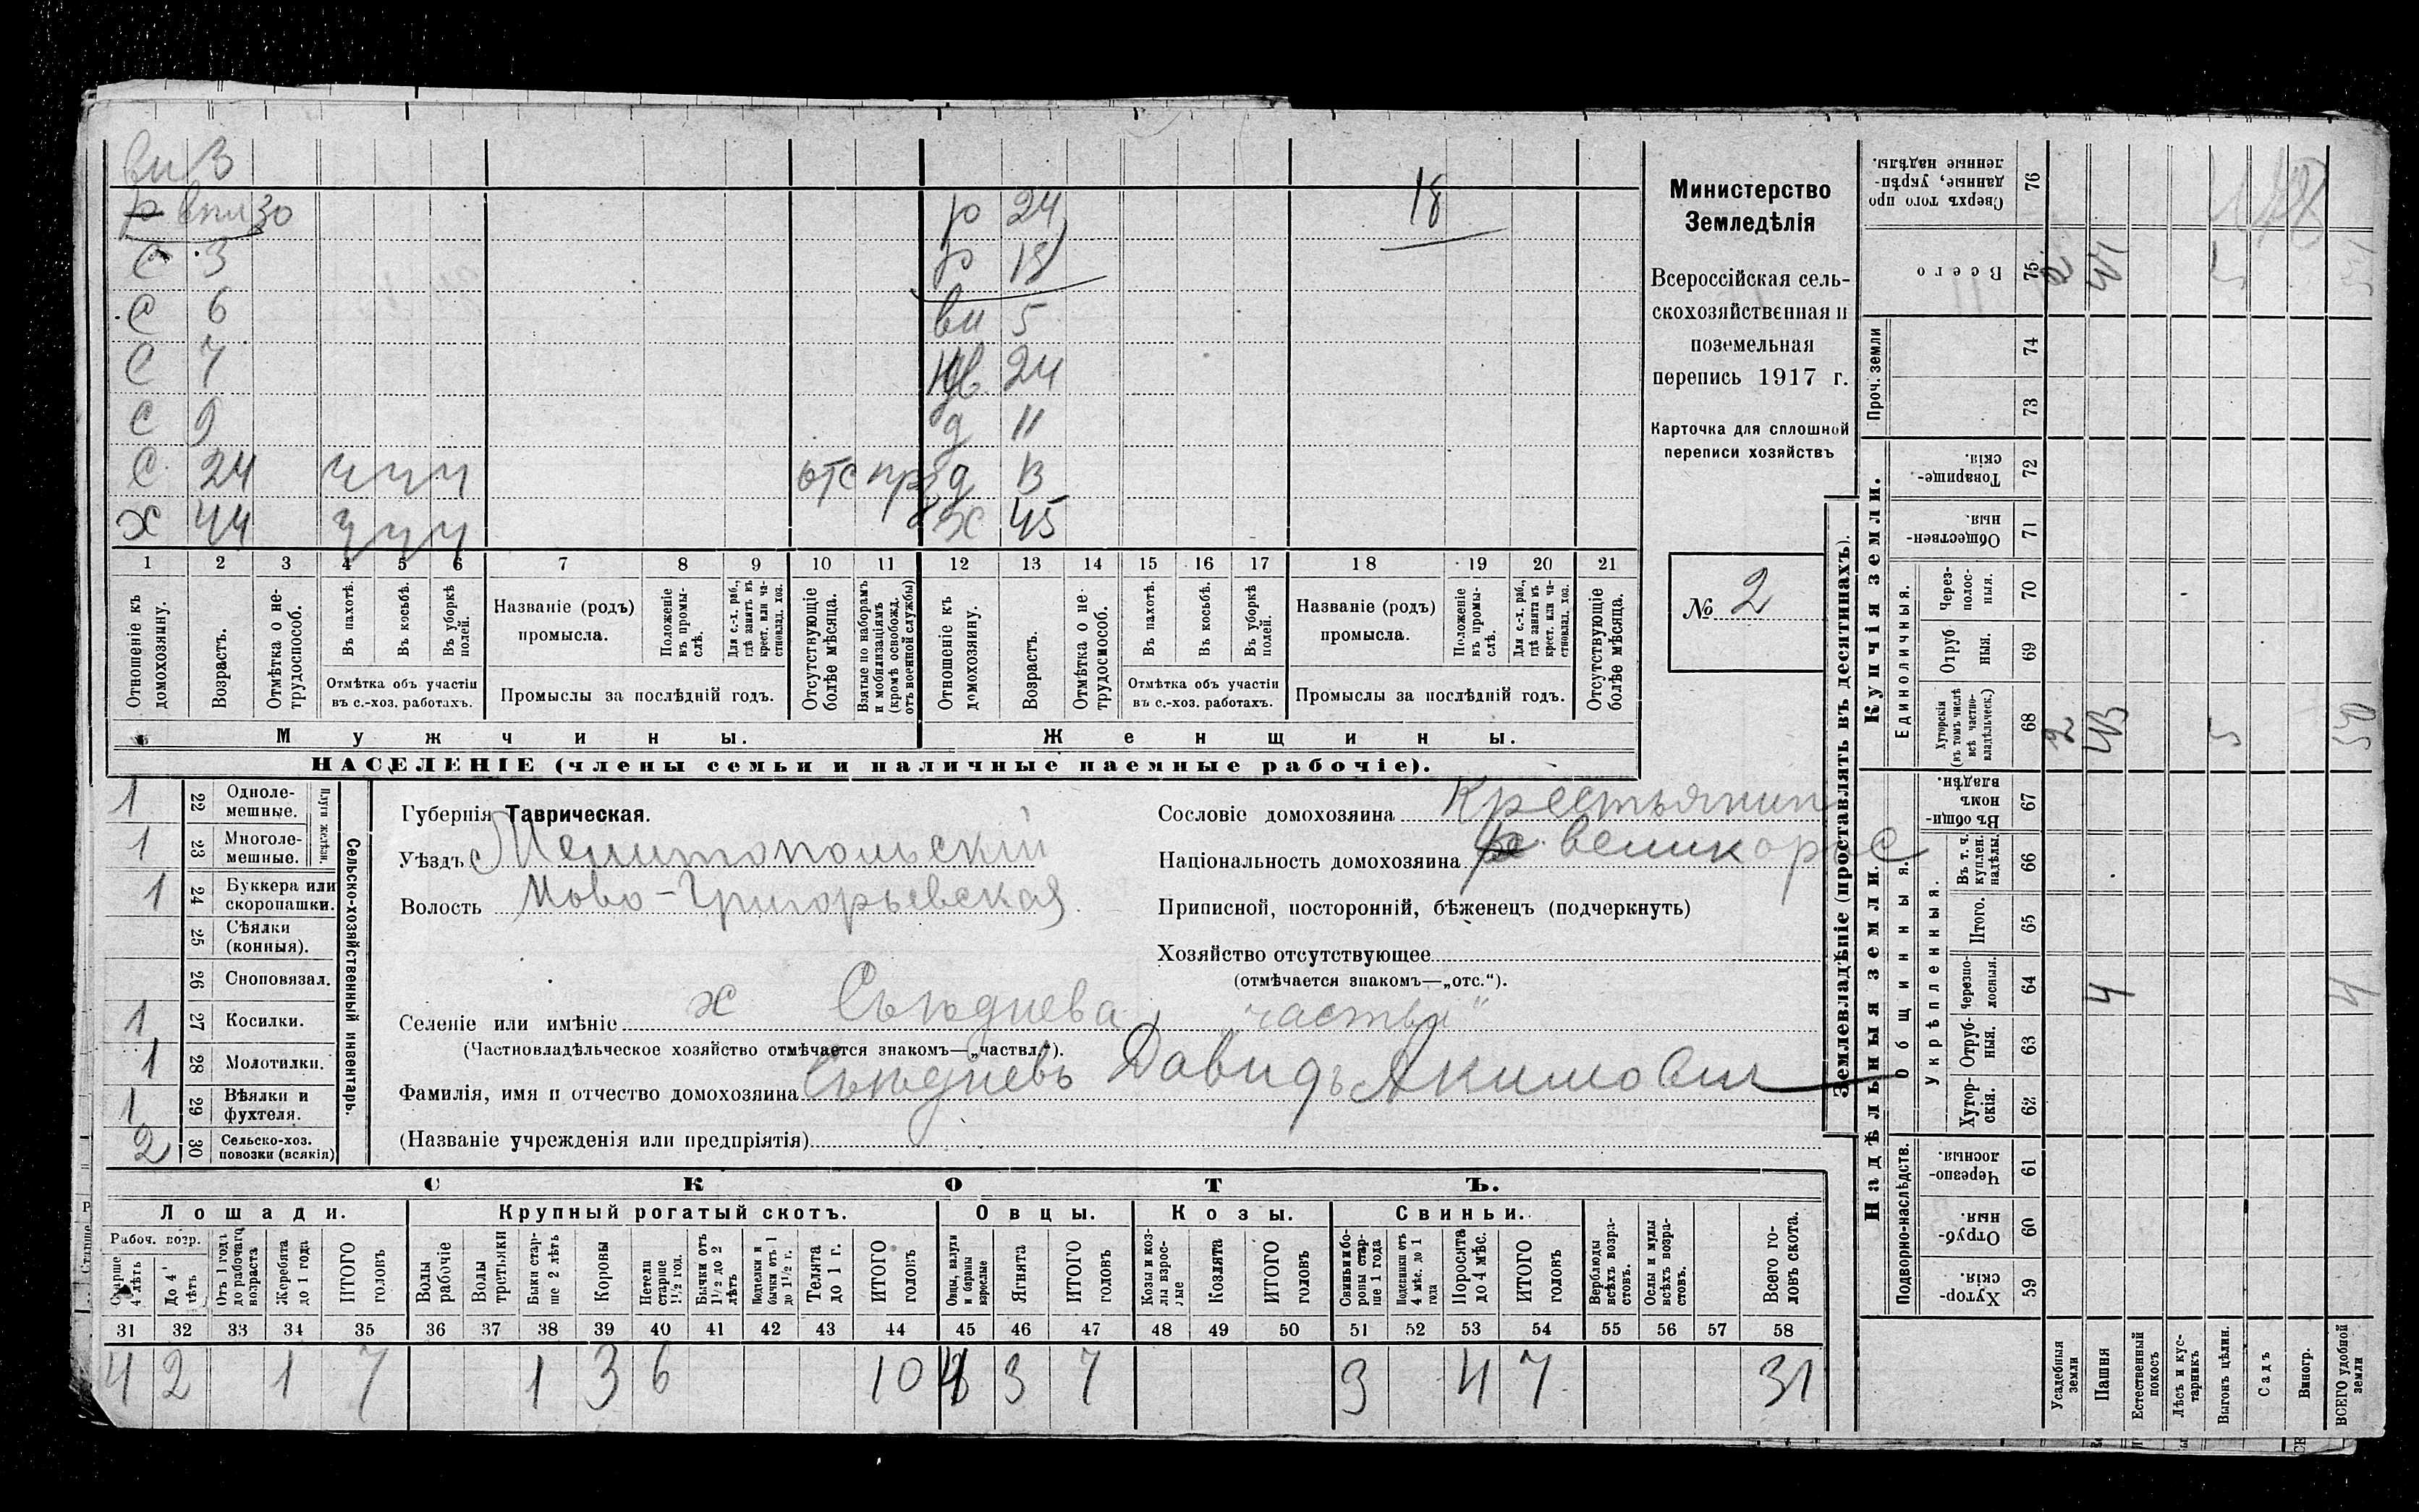 вн 3
р впл 30 р 24 18
с 3 р 18
с 6 вн 5
с 7 нв 24
с 9 д 11
с 24 ч ч ч отс пр д 13
х 44 ч ч ч х 45
1 2 3 4 5 6 7 8 9 10 11 12 13 14 15 16 17 18 19 20 21
Отношеніе къ домохозяину.
Возрастъ.
Отмѣтка о нетрудоспособ.
Въ пахотѣ.
Въ косьбѣ.
Въ уборкѣ полей.
Отмѣтка объ участіи
въ с.-хоз. работахъ.
Названіе (родъ)
промысла.
Положеніе въ промыслѣ.
Для с.-х. раб., гдѣ занятъ въ крест. или частновлад. хоз.
Промыслы за послѣдній годъ.
Отсутствующіе болѣе мѣсяца.
Взятые по наборамъ и мобилизаціямъ (кромѣ освобожд. отъ военной службы)
Отношеніе къ домохозяину.
Возрастъ.
Отмѣтка о нетрудоспособ.
Въ пахотѣ.
Въ косьбѣ.
Въ уборкѣ полей.
Отмѣтка объ участіи
въ с.-хоз. работахъ.
Названіе (родъ)
промысла.
Положеніе въ промыслѣ.
Для с.-х. раб., гдѣ занята въ крест. или частновлад. хоз.
Промыслы за послѣдній годъ.
Отсутствующіе болѣе мѣсяца.
Мужчины. Женщины.
НАСЕЛЕНІЕ (члены семьи и наличные наемные рабочіе).
Министерство
Земледѣлія
Всероссійская сель-
скохозяйственная и
поземельная
перепись 1917 г.
Карточка для сплошной
переписи хозяйствъ
№ 2
1 22 Однолемешные.
1 23 Многолемешные.
Плуги желѣзн.
1 24 Буккера или скоропашки.
25 Сѣялки (конныя).
26 Сноповязал.
1 27 Косилки.
1 28 Молотилки.
1 29 Вѣялки и фухтеля.
2 30 Сельско-хоз. повозки (всякія)
Сельско-хозяйственный инвентарь.
Губернія Таврическая.
Уѣздъ Мелитопольскій
Волость Ново-Григорьевская
Селеніе или имѣніе х Съѣднева, частвл"
(Частновладѣльческое хозяйство отмѣчается знакомъ—„частвл.“).
Фамилія, имя и отчество домохозяина Съѣдневъ Давидъ Акимович
(Названіе учрежденія или предпріятія)
Сословіе домохозяина Крестьянин
Національность домохозяина великорос
Приписной, посторонній, бѣженецъ (подчеркнуть)
Хозяйство отсутствующее
(отмѣчается знакомъ—„отс.“).
СКОТЪ.
Лошади. Крупный рогатый скотъ. Овцы. Козы. Свиньи.
Рабоч. возр.
Старше 4 лѣтъ
До 4 лѣтъ
Отъ 1 года до рабочаго возраста
Жеребята до 1 года
ИТОГО головъ
Волы рабочіе
Волы третьяки
Быки старше 2 лѣтъ
Коровы
Нетели старше 1½ год.
Бычки отъ 1½ до 2 лѣтъ
Подтелки и бычки отъ 1 до 1½ г.
Телята до 1 г.
ИТОГО головъ
Овцы, валухи и бараны взрослые
Ягнята
ИТОГО головъ
Козы и козлы взрослые
Козлята
ИТОГО головъ
Свиньи и боровы старше 1 года
Подсвинки отъ 4 мѣс. до 1 года
Поросята до 4 мѣс.
ИТОГО головъ
Верблюды всѣхъ возрастовъ.
Ослы и мулы всѣхъ возрастовъ.
Всего головъ скота.
31 32 33 34 35 36 37 38 39 40 41 42 43 44 45 46 47 48 49 50 51 52 53 54 55 56 57 58
4 2 1 7 1 3 6 10 4 3 7 3 4 7 31
Землевладѣніе (проставлять въ десятинахъ).
Надѣльныя земли. Купчія земли. Проч. земли
Подворно-наслѣдств. Общинныя. Укрѣпленныя. Единоличныя.
Сверхъ того проданные, укрѣпленные надѣлы. 76
Всего 75 2 47 5
74
73
Товарищескія. 72
Общественныя. 71
Черезполосныя. 70
Отрубныя. 69
Хуторскія (въ томъ числѣ всѣ частновладѣльческ.) 68 2 43 5 50
Въ общинномъ владѣн. 67
Въ т. ч. куплен. надѣлы. 66
Итого. 65
Черезполосныя. 64 4 4
Отрубныя. 63
Хуторскія. 62
Черезполосныя. 61
Отрубныя. 60
Хуторскія. 59
Усадебныя земли
Пашня
Естественный покосъ
Лѣсъ и кустарникъ
Выгонъ цѣлин.
Садъ
Виногр.
ВСЕГО удобной земли